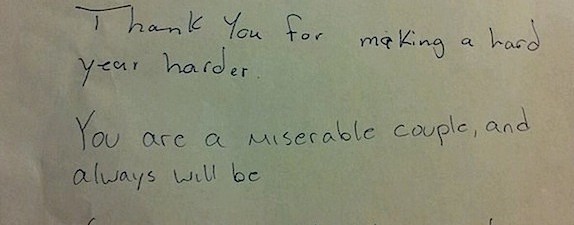 Thank You for making a hard
year harder.
You are a miserable couple, and
always will be